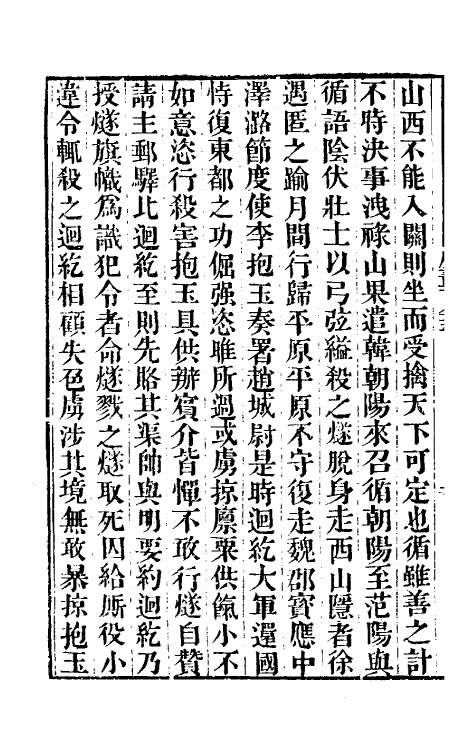 山西不能入關則坐而受擒天下可定也循雖善之計
不時決事洩祿山果遣韓朝陽來召循朝陽至范陽與
循語陰伏壯士以弓弦縊殺之燧脫身走西山隱者徐
遇匿之踰月間行歸平原平原不守復走魏郡寶應中
澤潞節度使李抱玉奏署趙城尉是時迴紇大軍還國
恃復東都之功倔强恣睢所過或虜掠廩粟供餼小不
如意恣行殺害抱玉具供辦賓介皆憚不敢行燧自贊
請主郵驛比迴紇至則先賂其渠帥與明要約迴紇乃
授燧旗幟爲識犯令者命燧戮之燧取死囚給厮役小
違令輒殺之迴紇相顧失色虜涉其境無敢暴掠抱玉